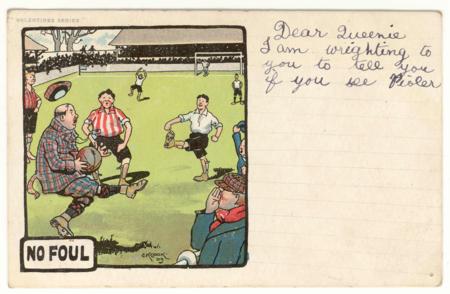 VALENTINES SERIES
Dear Queenie
I am wrighting to
you to tell you
if you see
NO FOUL